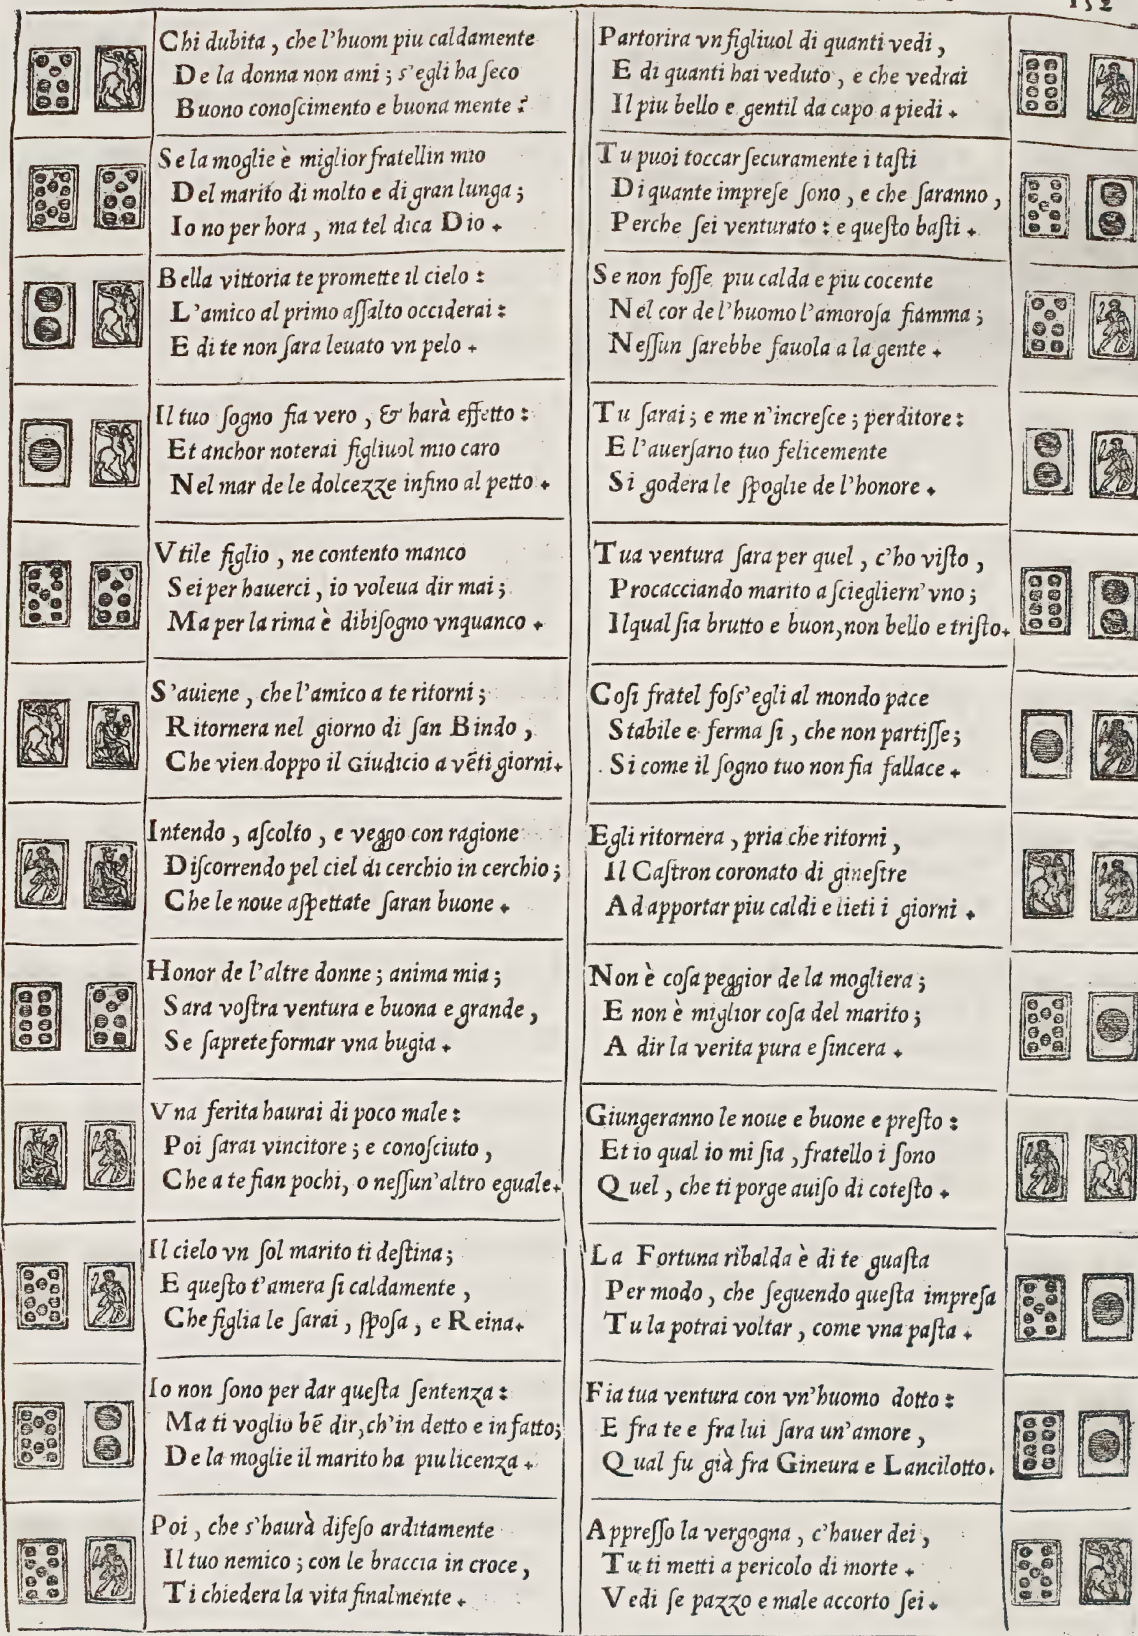 152
Chi dubita, che l'huom piu caldamente
De la donna non ami; s'egli ha ſeco
Buono conoſcimento e buona mente?
Se la moglie è miglior fratellin mio
Del marito di molto e di gran lunga;
Io no per hora, ma tel dica Dio.
Bella vittoria te promette il cielo:
L'amico al primo aſſalto occiderai:
E di te non ſara leuato vn pelo.
Il tuo ſogno fia vero, & harà effetto:
Et anchor noterai figliuol mio caro
Nel mar de le dolcezze infino al petto.
Vtile figlio, ne contento manco
Sei per hauerci, io voleua dir mai;
Ma per la rima è dibiſogno vnquanco.
S'auiene, che l'amico a te ritorni;
Ritornera nel giorno di ſan Bindo,
Che vien doppo il Giudicio a vēti giorni.
Intendo, aſcolto, e veggo con ragione
Diſcorrendo pel ciel di cerchio in cerchio;
Che le noue aſpettate ſaran buone.
Honor de l'altre donne; anima mia;
Sara voſtra ventura e buona e grande,
Se ſaprete formar vna bugia.
Vna ferita haurai di poco male:
Poi ſarai vincitore; e conoſciuto,
Che a te fian pochi, o neſſun'altro eguale.
Il cielo vn ſol marito ti deſtina;
E queſto t'amera ſi caldamente,
Che figlia le ſarai, ſpoſa, e Reina.
Io non ſono per dar queſta ſentenza:
Ma ti voglio bē dir, ch'in detto e in fatto;
De la moglie il marito ha piu licenza.
Poi, che s'haurà difeſo arditamente
Il tuo nemico; con le braccia in croce,
Ti chiedera la vita finalmente.
Partorira vn figliuol di quanti vedi,
E di quanti hai veduto, e che vedrai
Il piu bello e gentil da capo a piedi.
Tu puoi toccar ſecuramente i taſti
Di quante impreſe ſono, e che ſaranno,
Perche ſei venturato: e queſto baſti.
Se non foſſe piu calda e piu cocente
Nel cor de l'huomo l'amoroſa fiamma;
Neſſun ſarebbe fauola a la gente.
Tu ſarai; e me n'increſce; perditore:
E l'auerſario tuo felicemente
Si godera le ſpoglie de l'honore.
Tua ventura ſara per quel, c'ho viſto,
Procacciando marito a ſciegliern'vno;
Ilqual ſia brutto e buon, non bello e triſto.
Coſi fratel foſs'egli al mondo pace
Stabile e ferma ſi, che non partiſſe;
Si come il ſogno tuo non fia fallace.
Egli ritornera, pria che ritorni,
Il Caſtron coronato di gineſtre
Ad apportar piu caldi e lieti i giorni.
Non è coſa peggior de la mogliera;
E non è miglior coſa del marito;
A dir la verita pura e ſincera.
Giungeranno le noue e buone e preſto:
Et io qual io mi ſia, fratello i ſono
Quel, che ti porge auiſo di coteſto.
La Fortuna ribalda è di te guaſta
Per modo, che ſeguendo queſta impreſa
Tu la potrai voltar, come vna paſta.
Fia tua ventura con vn'huomo dotto:
E fra te e fra lui ſara un'amore,
Qual fu già fra Gineura e Lancilotto.
Appreſſo la vergogna, c'hauer dei,
Tu ti metti a pericolo di morte.
Vedi ſe pazzo e male accorto ſei.